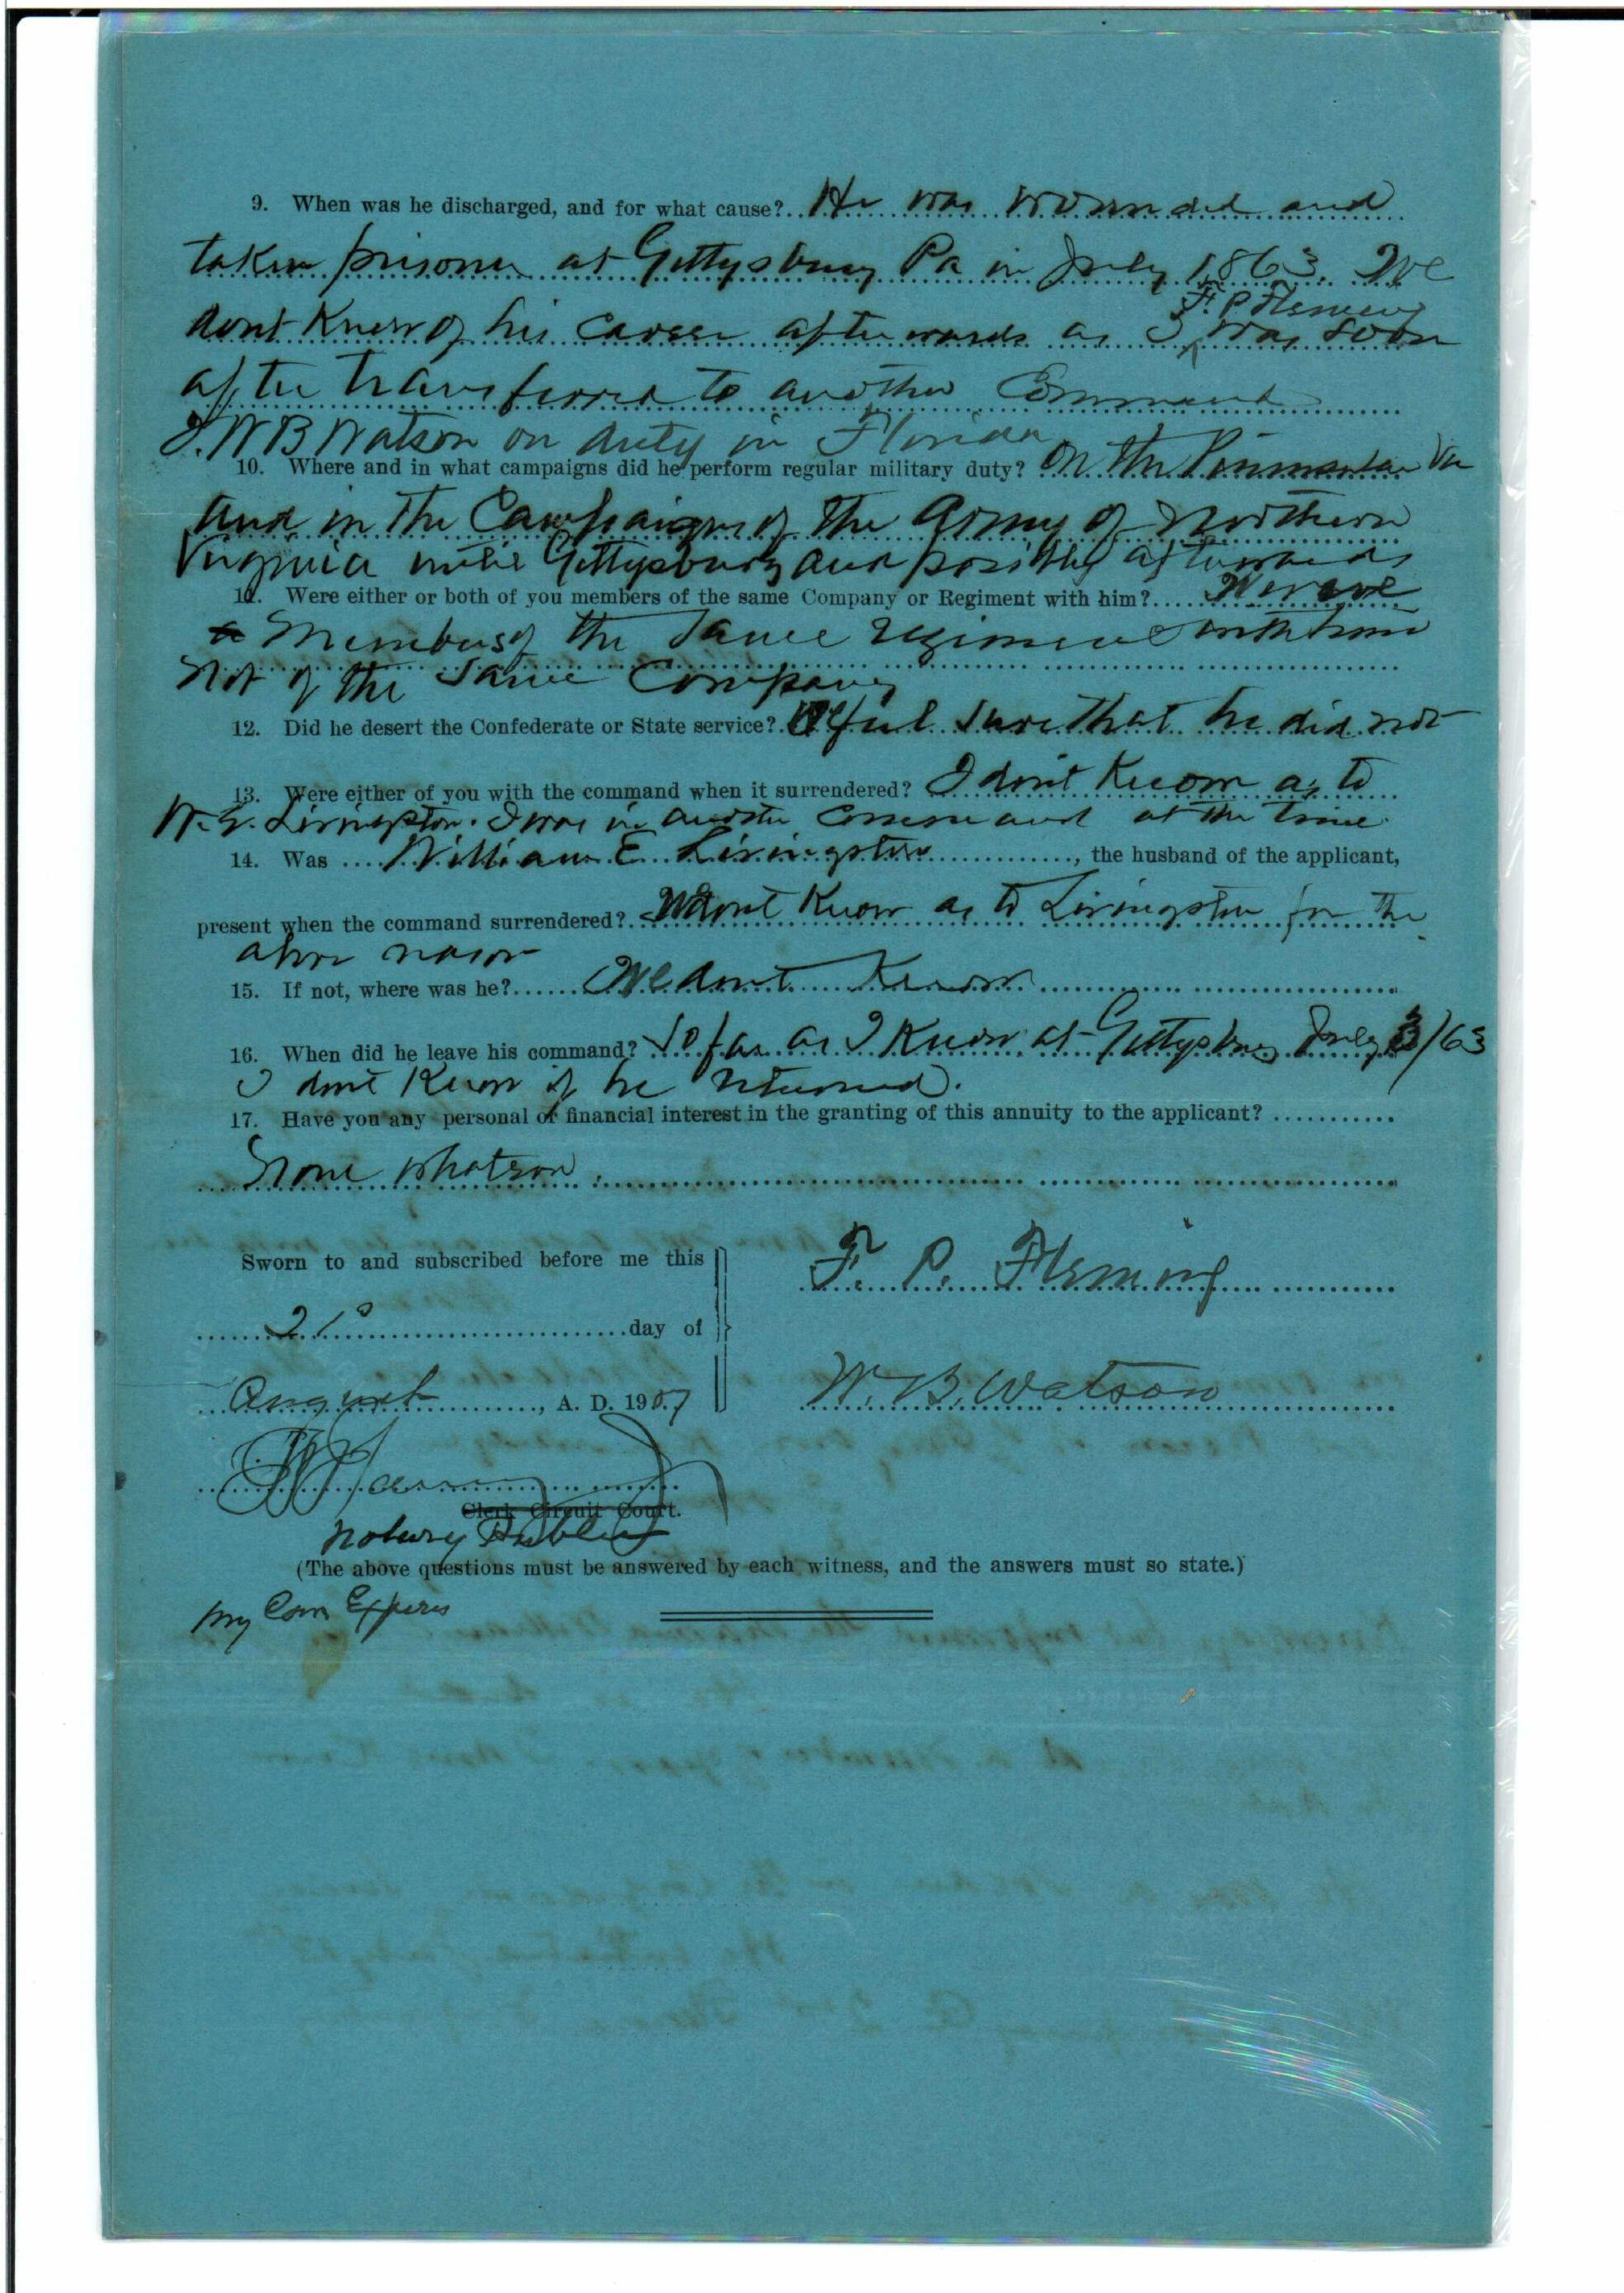 9. When was he discharged, and for what cause? He was wounded and
taken prisoner at Gettysburg Pa in July 1863. We
F. P. Fleming
dont know of his career afterwards as I was soon
after transferred to another Command
I. W B Watson on duty in Florida
10. Where and in what campaigns did he perform regular military duty? On the Peninsular Va
and in the Campaigns of the Army of Northern
Virginia until Gettysburg and possibly afterwards
11. Were either or both of you members of the same Company or Regiment with him? We were
Members of the Same regiment with him
Not of the Same Company
12. Did he desert the Confederate or State service? We feel sure that he did not
13. Were either of you with the command when it surrendered? I dont Know as to
W. E. Livingston. I was in another Command at the time
14. Was William E Livingston, the husband of the applicant,
present when the command surrendered? We dont Know as to Livingston for the
above reason
15. If not, where was he? We dont Know
16. When did he leave his command? So far as I Know at Gettysburg July 3/63
I dont Know if he returned.
17. Have you any personal or financial interest in the granting of this annuity to the applicant?
None whatson.
Sworn to and subscribed before me this
F. P. Fleming
21 day of
August, A. D. 1907
W. B. Watson
Clerk Circuit Court.
Notary Public
(The above questions must be answered by each witness, and the answers must so state.)
My Com Expires